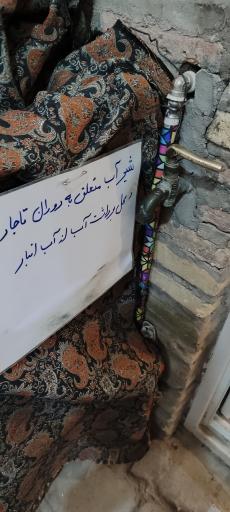 شیر آب متعلق به دوران قاجار
در محل برداشت آب از آب انبار